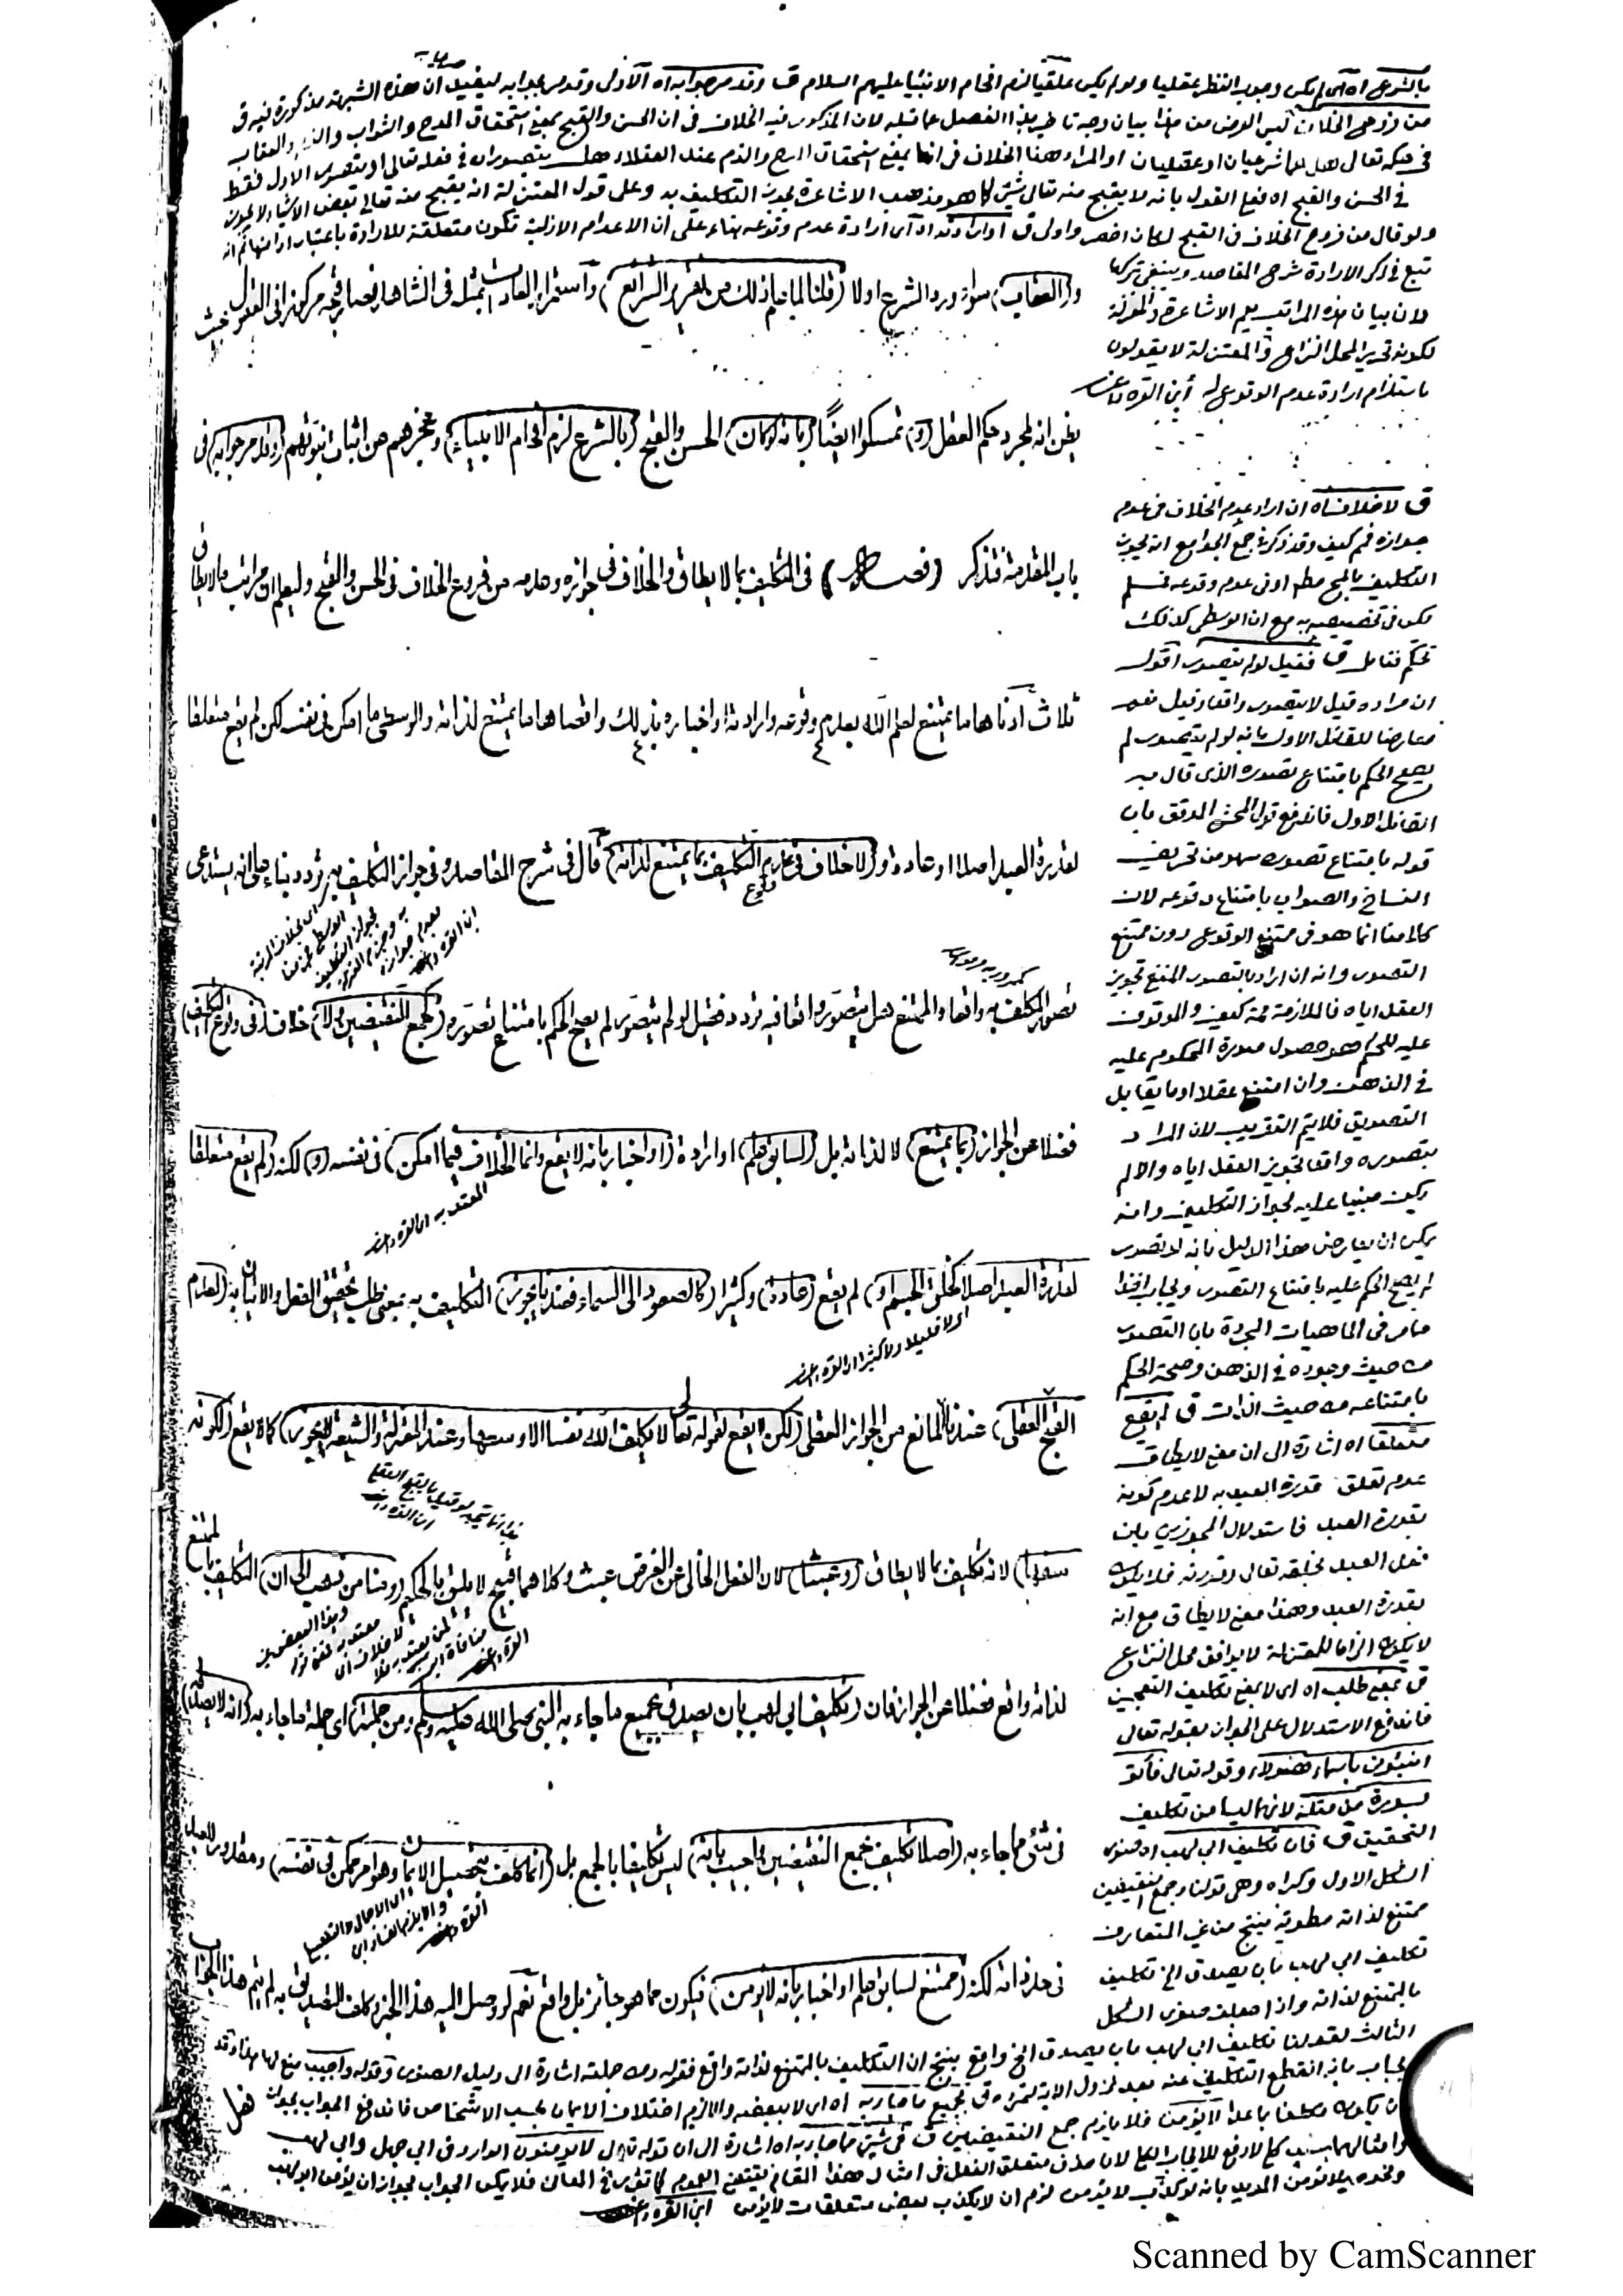 بالشرع اه اى لم يكن وجوب النظر عقليا ولو لم يكن عقليا لزم افحام الانبياء عليهم السلام ق وقد مر جوابه اه الاولى وقد مر بجوابه ليفيد ان هذه الشبهة مذكورة فيه ق
من فروع الخلاف ليس الغرض من هذا بيان وجه تأخير هذا الفصل عما قبله لان المذكور فيه الخلاف فى ان الحسن والقبح بمعنى استحقاق المدح والثواب والذم والعقاب
فى حكمه تعالى هل هما شرعيان او عقليان او المراد هنا الخلاف فى انهما بمعنى استحقاق المدح والذم عند العقلاء هل يتصوران فى فعله تعالى او يتصور الاول فقط
فى الحسن والقبح اه فمع القول بانه لا يقبح منه تعالى شئ كما هو مذهب الاشاعرة يجوز التكليف به وعلى قول المعتزلة انه يقبح منه تعالى بعض الاشياء لا يجوز
ولو قال من فروع الخلاف فى القبح لكان اخصر واولى ق او ارادته اه اى ارادة عدم وقوعه بناء على ان الاعدام الازلية تكون متعلقة للارادة
تبع فى ذكر الارادة شرح المقاصد وينبغى تركها
لان بيان هذه المراتب يعم الاشاعرة والمعتزلة
لكونه تحرير المحل النزاع والمعتزلة لا يقولون
باستلزام ارادة عدم الوقوع له ابن القره داغى
و(العقاب) سواء ورد الشرع اولا (قلنا لما علم ذلك من تقرير الشرائع) واستمرار العادات بمثله فى الشاهد فصار قبحه مركوزا فى العقول بحيث
يظن انه لمجرد حكم العقل (و) تمسكوا ايضًا (بانه لو كان) الحسن والقبح (بالشرع لزم افحام الانبياء) وعجزهم عن اثبات نبوتهم (وقد مر جوابه) فى
باب المقدمة فتذكر (فصل) فى التكليف بما لا يطاق والخلاف فى جوازه وعدمه من فروع الخلاف فى الحسن والقبح وليعلم ان مراتب ما لا يطاق
ثلاث ادناها ما يمتنع لعلم الله بعدم وقوعه وارادته او اخباره بذلك واقصاها ما يمتنع لذاته والوسطى ما امكن فى نفسه لكن لم يقع متعلقا
لقدرة العبد اصلا او عادة و(لا خلاف فى عدم) وقوع (التكليف بما يمتنع لذاته) قال فى شرح المقاصد وفى جواز التكليف به تردد بناء على انه يستدعى
تصور المكلف به واقعا والممتنع هل يتصور واقعا فيه تردد فقيل لو لم يتصور لم يصح الحكم بامتناع تصوره (كجمع النقيضين ولا) خلاف (فى وقوع التكليف)
فضلا عن الجواز (بما يمتنع) لا لذاته بل (لسابق علم) او ارادة (او اخبار بانه لا يقع وانما الخلاف فيما امكن) فى نفسه (و) لكنه (لم يقع متعلقا
المعتد به ابن القره داغى
لقدرة العبد اصلا كخلق الجسم او) لم يقع (عادة) وكثيرا (كالصعود الى السماء فعندنا يجوز) التكليف به بمعنى طلب تحقيق الفعل والاتيان به (لعدم
اى لا قليلا ولا كثيرا ابن القره داغى
القبح العقلى) عندنا المانع من الجواز العقلى (لكن لا يقع لقوله تعالى لا يكلف الله نفسا الا وسعها وعند المعتزلة والشيعة لا يجوز) كما لا يقع (لكونه
سفها) لانه تكليف بما لا يطاق (وعبثا) لان الفعل الخالى عن الغرض عبث وكلاهما قبيح لا يليق بالحكيم (ومنا من ذهب الى ان) التكليف بالممتنع
لذاته واقع فضلا عن الجواز فان (تكليف ابى لهب بان يصدق بجميع ما جاء به النبى صلى الله عليه وسلم ومن جملته) اى جملة ما جاء به (انه لا يصدق)
فى شئ مما جاء به (اصلا تكليف بجمع النقيضين واجيب بانه) ليس تكليفا بالجمع بل (انما كلف بتحصيل الايمان وهو امر ممكن فى نفسه) ومقدور للعبد
فى حد ذاته لكنه (ممتنع لسابق علم او اخبار بانه لا يؤمن) فيكون مما هو جائز بل واقع نعم لو وصل اليه هذا الخبر وكلف التصديق به لم يتم هذا الجواب
ق لا خلاف اه ان اراد عدم الخلاف فى عدم
جوازه فمم كيف وقد ذكر فى جمع الجوامع انه يجوز
التكليف بالمح مطلقا او فى عدم وقوعه فمسلم
لكن فى تخصيصه به مع ان الوسطى كذلك
تحكم فتأمل ق فقيل لو لم يتصور اقول
ان مراده قيل لا يتصور واقعا وقيل نعم
معارضا للقائل الاول بانه لو لم يتصور لم
يصح الحكم بامتناع تصوره الذى قال به
القائل الاول فاندفع قول المحشى المدقق بان
قوله بامتناع تصوره سهو من تحريف
الناسخ والصواب بامتناع وقوعه لان
كلامنا انما هو فى ممتنع الوقوع دون ممتنع
التصور وانه ان اراد بالتصور المنفى تجويز
العقل اياه فالملازمة ممه كيف والموقوف
عليه للحكم هو حصول صورة المحكوم عليه
فى الذهن وان امتنع عقلا او ما يقابل
التصديق فلا يتم التقريب لان المراد
بتصوره واقعا تجويز العقل اياه والا لم
يكن مبنيا عليه لجواز التكليف وانه
يمكن ان يعارض هذا الدليل بانه لو تصور
لم يصح الحكم عليه بامتناع التصور ويجاب اخذا
مما مر فى الماهيات المجردة بان التصور
من حيث وجوده فى الذهن وصحة الحكم
بامتناعه من حيث الذات ق لم يقع
متعلقا اه اشارة الى ان معنى لا يطاق
عدم تعلق قدرة العبد به لا عدم كونه
بقدرة العبد فاستدلال المجوزين بان
فعل العبد بخلقه تعالى وقدرته فلا يكون
بقدرة العبد وهذا معنى لا يطاق مع انه
لا يكون الزاما للمعتزلة لا يوافق محل النزاع
ق بمعنى طلب اه اى لا بمعنى تكليف التعجيز
فاندفع الاستدلال على الجواز بقوله تعالى
انبئونى باسماء هؤلاء وقوله تعالى فأتوا
بسورة من مثله لانهما ليسا من تكليف
التحقيق ق فان تكليف ابى لهب اه صغرى
الشكل الاول وكبراه وهى قولنا وجمع النقيضين
ممتنع لذاته مطوية ينتج من غير المتعارف
تكليف ابى لهب بان يصدق الخ تكليف
بالممتنع لذاته واذا جعلت صغرى الشكل
الثالث لقولنا تكليف ابى لهب بان يصدق الخ واقع ينتج ان التكليف بالممتنع لذاته واقع فقوله ومن جملته اشارة الى دليل الصغرى وقوله واجيب منع لها
يجاب بانه انقطع التكليف عنه بعد نزول الآية ق بجميع ما جاء به اه اى لا ببعضه والا لزم اختلاف الايمان بحسب الاشخاص فاندفع الجواب بجواز
ان يكون مكلفا بما عدا لا يؤمن فلا يلزم جمع النقيضين ق فى شئ مما جاء به اه اشارة الى ان قوله تعالى لا يؤمنون الوارد فى ابى جهل وابى لهب
وامثالهما سلب كلى لا رفع للايجاب الكلى لان حذف متعلق الفعل فى امثال هذا المقام يقتضى العموم كما تقرر فى المعانى فلا يمكن الجواب بجواز ان يؤمن ابو لهب
لزم ان لا يكذب بعض متعلقات لا يؤمن ابن القره داغى
Scanned by CamScanner